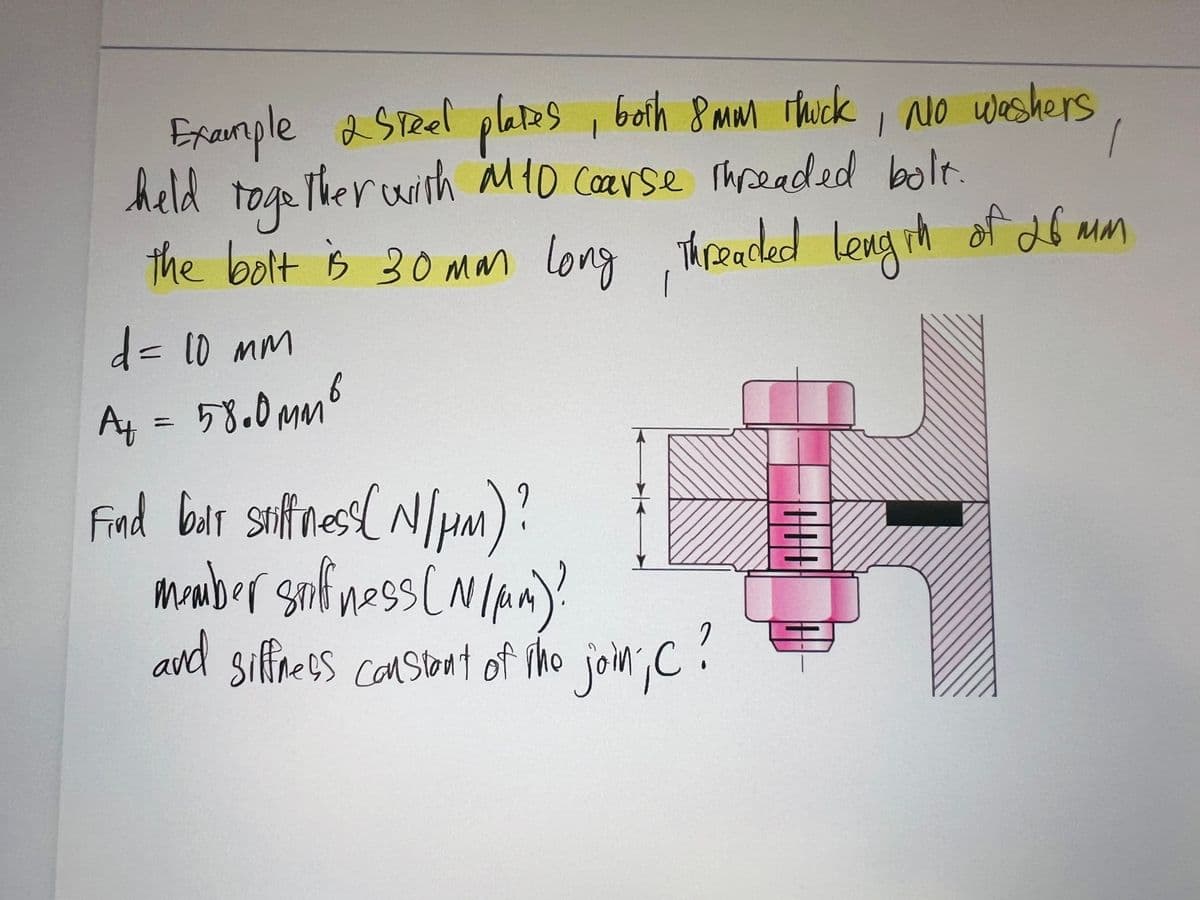 Example 2 Steel plates, both 8 mm thick, No washers,
held together with M10 Coarse Threaded bolt.
the bolt is 30 mm long, Threaded length of 26 mm
d = 10 mm
At = 58.0 mm⁶
Find bolt stiffness (N/μm)?
member stiffness (N/μm)?
and siffness constant of the join, C?